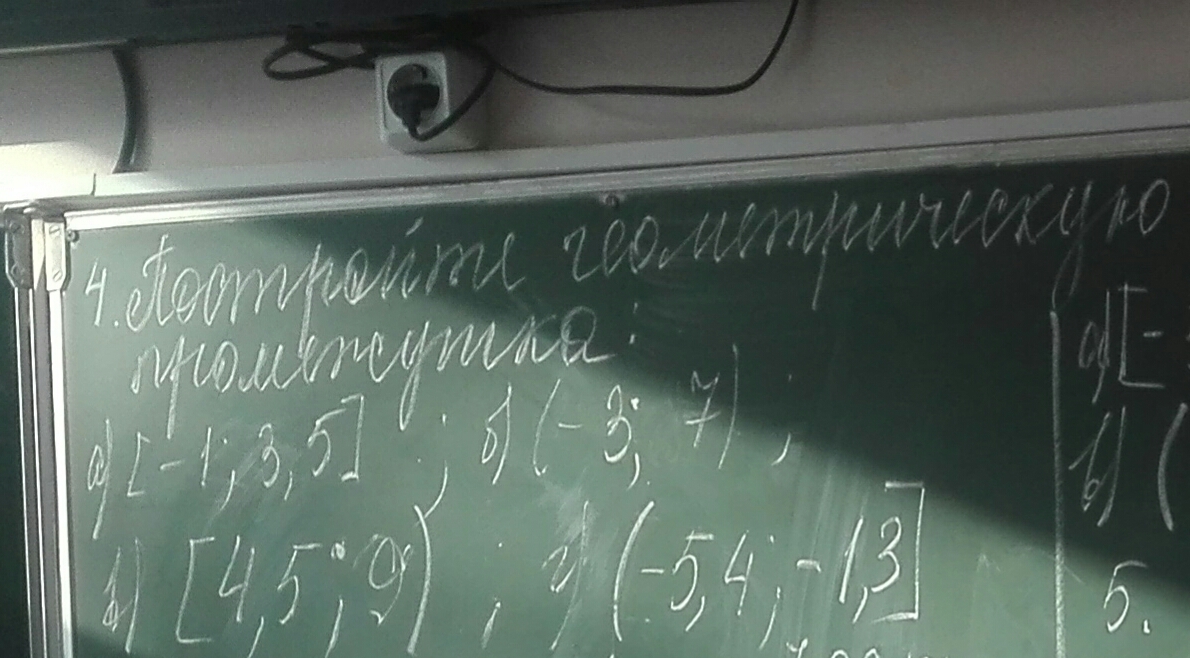 4. Постройте геометрическую
промежутка:
а) [-1; 3,5] ; б) (-3; 7) ;
а) [-
в) [4,5; 9) ; г) (-5,4; -1,3]
в) (
5.